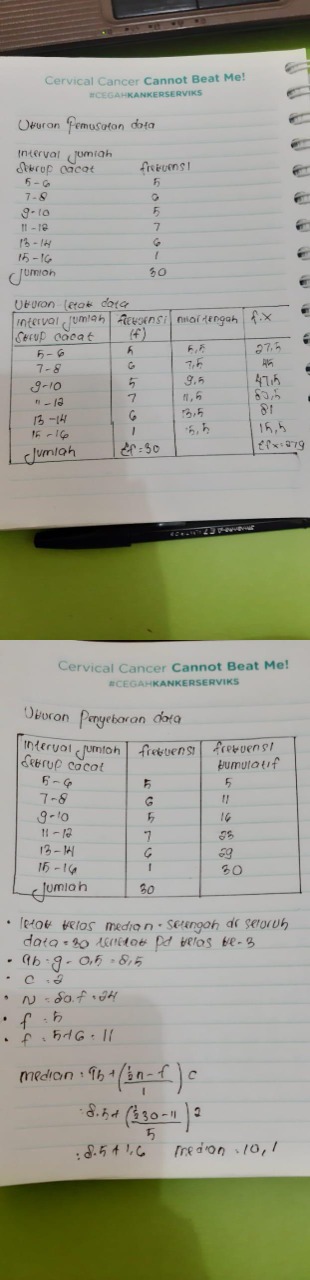 Cervical Cancer Cannot Beat Me!
#CEGAHKANKERSERVIKS
Ukuran Pemusatan data
Interval Jumlah
Sekrup cacat frekuensi
5-6 5
7-8 6
9-10 5
11-12 7
13-14 6
15-16 1
Jumlah 30
Ukuran letak data
Interval Jumlah frekuensi nilai tengah f.x
Sekrup cacat (f)
5-6 5 5,5 27,5
7-8 6 7,5 45
9-10 5 9,5 47,5
11-12 7 11,5
13-14 6 13,5 81
15-16 1 15,5
Jumlah Σf=30
Cervical Cancer Cannot Beat Me!
#CEGAHKANKERSERVIKS
Ukuran Penyebaran data
Interval Jumlah frekuensi frekuensi
Sekrup cacat kumulatif
5-6 5 5
7-8 6 11
9-10 5 16
11-12 7 23
13-14 6 29
15-16 1 30
Jumlah 30
• letak kelas median = setengah dr seluruh
data = 30 terletak pd kelas ke-3
• qb = 9 - 0,5 = 8,5
• c = 2
• f = 5
• f = 5+6 = 11
median = qb + (½n - f / 1) c
= 8.5 + (½30 - 11 / 5) 2
= 8.5 + 1,6 median = 10,1